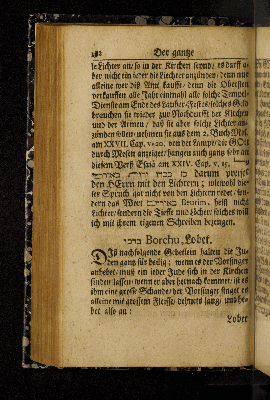 182 Der gantze
le Lichter an/so in der Kirchen seynd/ es darff a-
ber nicht ein jeder die Liechter anzünden/ denn nur
alleine wer diß Amt kaufft/ denn die Obersten
verkauffen alle Jahr einmahl alle solche Tempel-
Dienste am Ende des Lauber-Festes/solches Geld
brauchen sie wieder zur Nothdurfft der Kirchen
und der Armen/ daß sie aber solche Lichter an-
zünden sollen/nehmen sie aus dem 2. Buch Mos.
am XXVII. Cap. v. 20. von der Lampe/die GOtt
durch Mosen anzeiget/hangen auch gantz sehr an
diesem Verß Esaiä am XXIV. Cap. v. 15.
darum preiset
den HErrn mit den Lichtern; wiewohl die-
ser Spruch gar nicht von den Lichtern redet/ son-
dern das Wort באורים Beurim, heist nicht
Lichter/sondern die Tieffe und Löcher/solches will
ich mit ihrem eigenen Schreiben bezeugen.
ברכו Borchu, Lobet.
DIs nachfolgende Gebetlein halten die Ju-
den gantz für heilig; wenn es der Vorsinger
anhebet/ muß ein jeder Jude sich in der Kirchen
finden lassen/ wenn er aber hernach kommet/ ist es
ihm eine grosse Schande/ der Vorsinger singet es
alleine mit grossem Fleisse/
bet also an:
Lobet